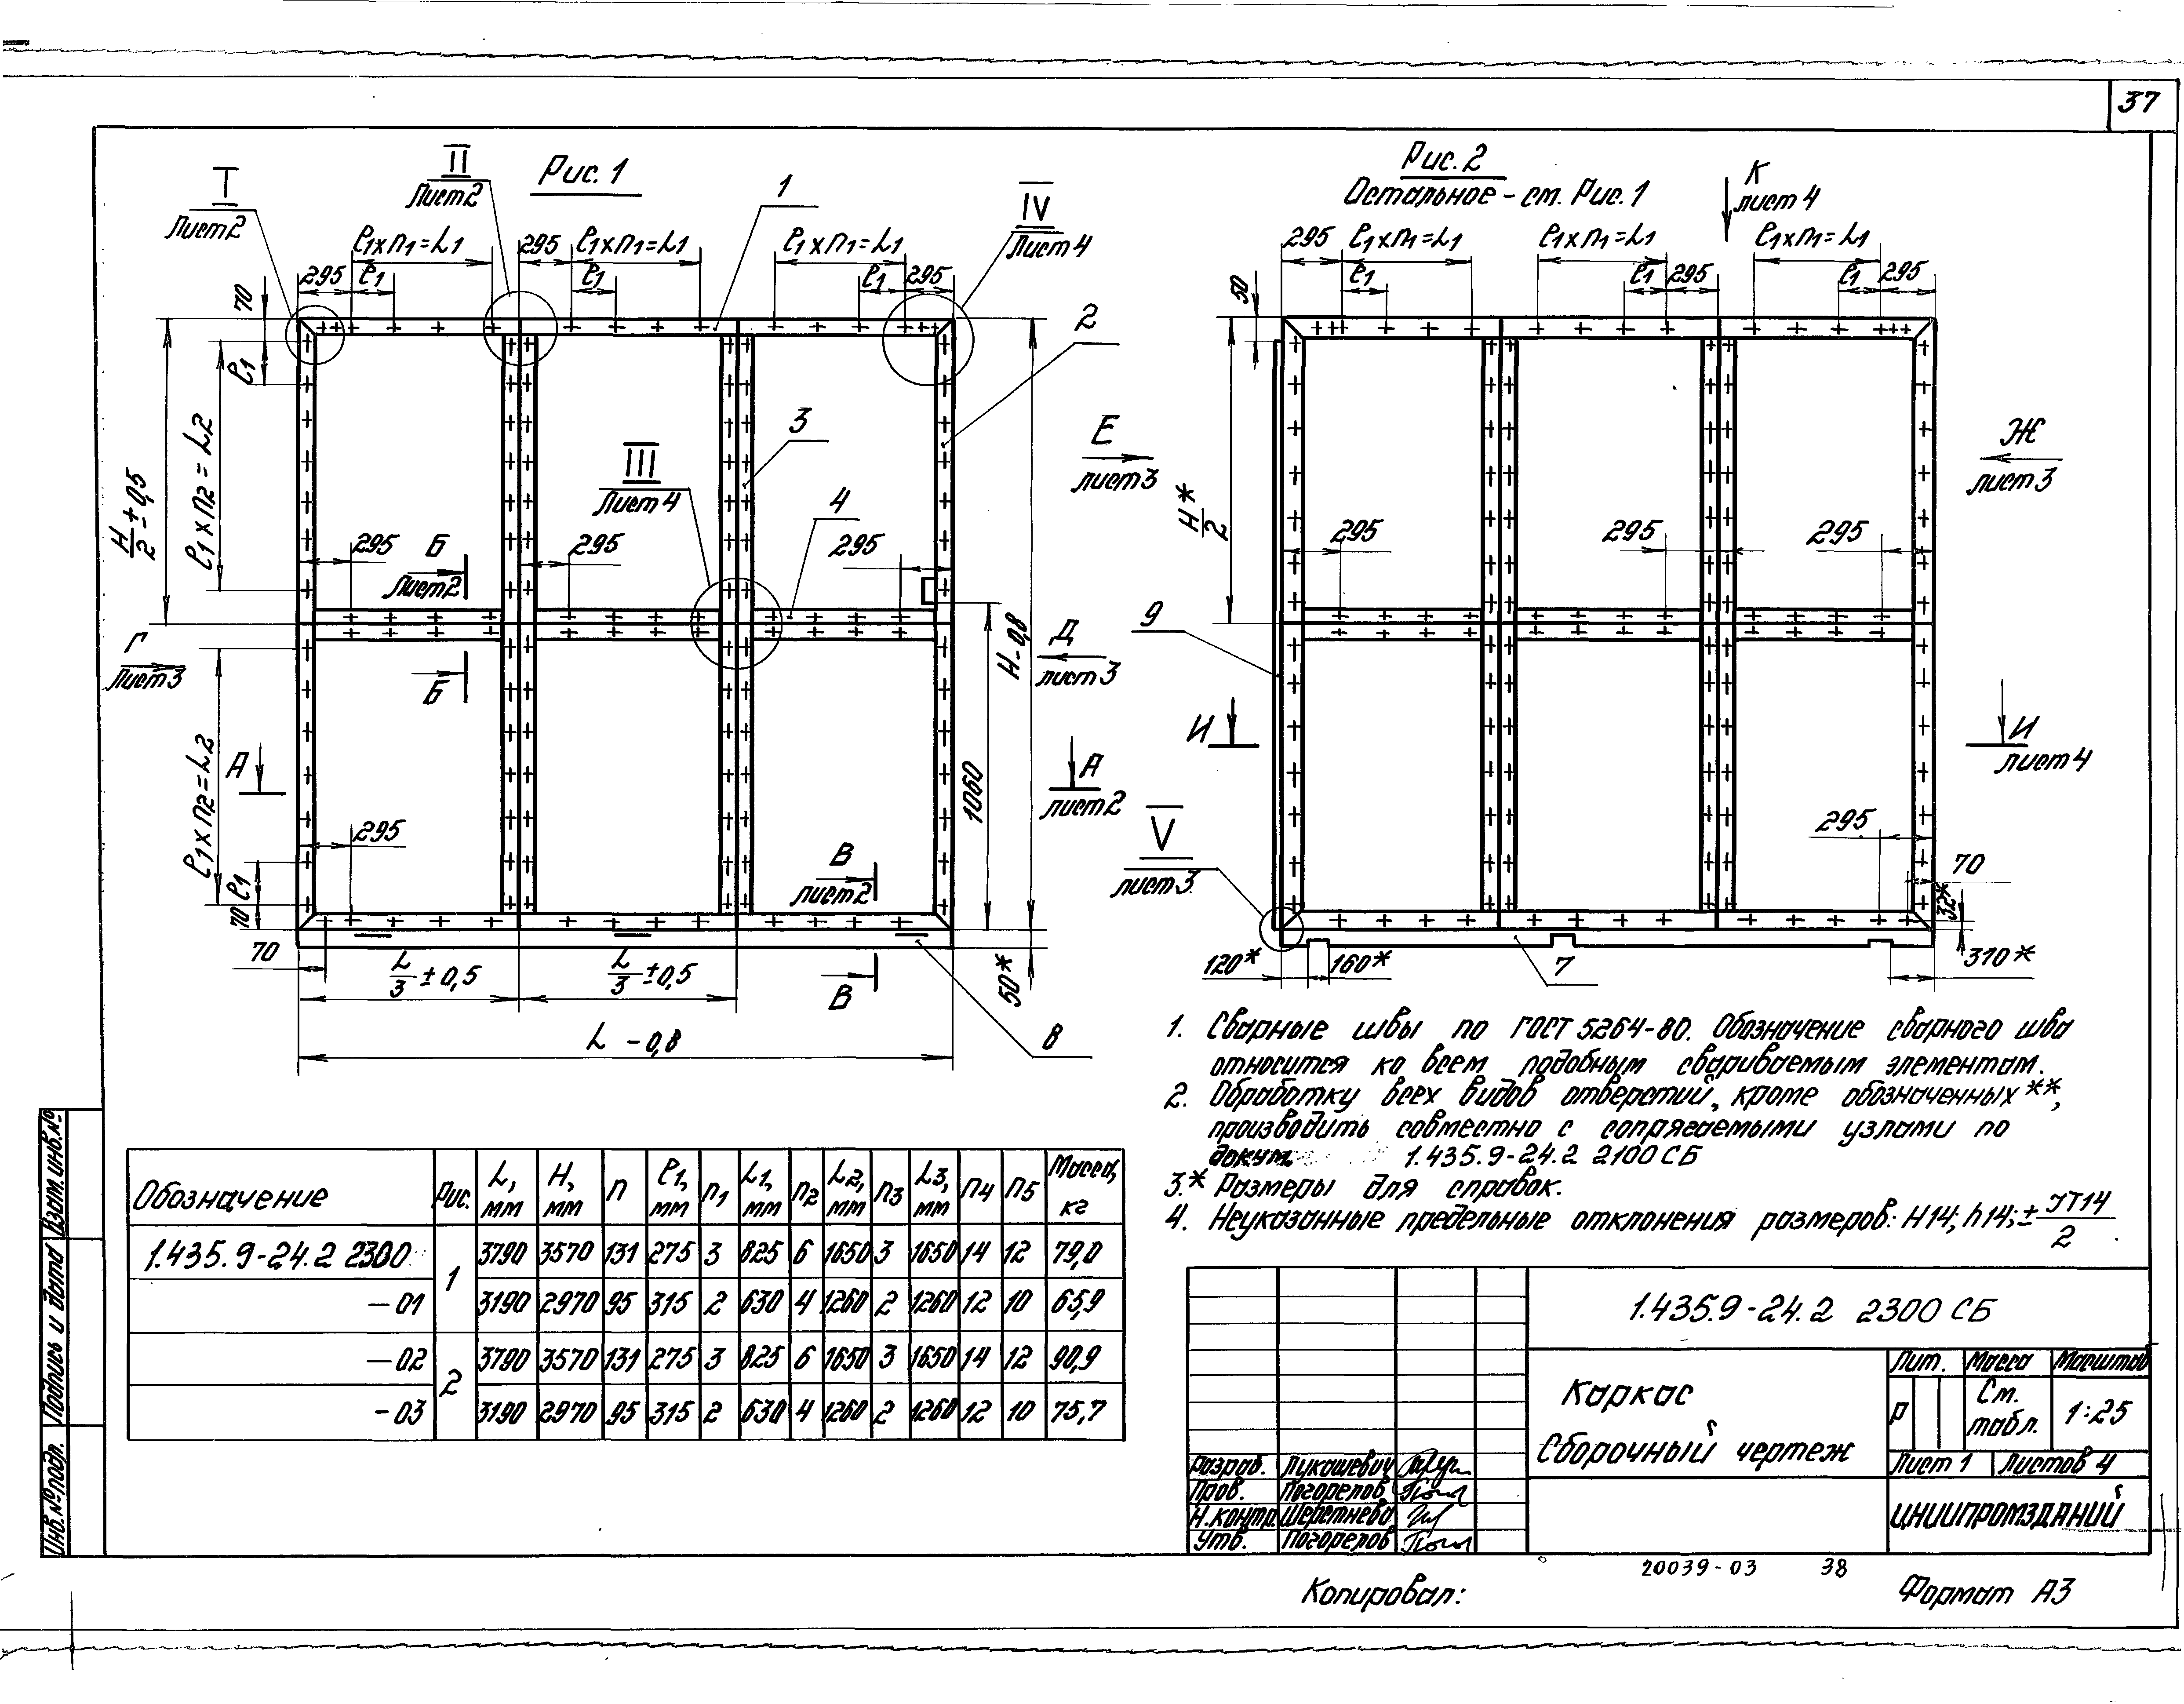 37
Рис. 1
I
Лист 2
II
Лист 2
1
IV
Лист 4
ℓ1 x n1 = L1
295
ℓ1 x n1 = L1
ℓ1 x n1 = L1
295
ℓ1
ℓ1
ℓ1
295
70
ℓ1
2
3
III
Лист 4
4
H/2 ± 0,5
ℓ1 x n2 = L2
295
Б
Лист 2
295
295
Г
Лист 3
Б
H-0,8
Д
лист 3
ℓ1 x n2 = L2
А
1060
А
лист 2
295
В
лист 2
ℓ1
70
70
L/3 ± 0,5
L/3 ± 0,5
В
50*
L - 0,8
8
Рис. 2
Остальное - см. Рис. 1
К
лист 4
295
ℓ1 x n1 = L1
ℓ1 x n1 = L1
ℓ1 x n1 = L1
50
ℓ1
ℓ1
295
ℓ1
295
Е
лист 3
Ж
лист 3
H*/2
295
295
295
9
И
И
лист 4
V
лист 3
295
70
32*
120*
160*
7
370*
1. Сварные швы по ГОСТ 5264-80. Обозначение сварного шва
относится ко всем подобным свариваемым элементам.
2. Обработку всех видов отверстий, кроме обозначенных **,
производить совместно с сопрягаемыми узлами по
докум. 1.435.9-24.2 2100 СБ
3.* Размеры для справок.
4. Неуказанные предельные отклонения размеров: H14; h14; ± JT14/2
Обозначение Рис. L, мм H, мм n ℓ1, мм n1 L1, мм n2 L2, мм n3 L3, мм n4 n5 Масса, кг
1.435.9-24.2 2300 1 3790 3570 131 275 3 825 6 1650 3 1650 14 12 79,0
-01 3190 2970 95 315 2 630 4 1260 2 1260 12 10 65,9
-02 2 3790 3570 131 275 3 825 6 1650 3 1650 14 12 90,9
-03 3190 2970 95 315 2 630 4 1260 2 1260 12 10 75,7
Взам. инв. №
Подпись и дата
Инв. № подл.
1.435.9-24.2 2300 СБ
Каркас
Сборочный чертеж
Лит. Масса Масштаб
Р См. табл. 1:25
Лист 1 Листов 4
ЦНИИПРОМЗДАНИЙ
Разраб. Лукашевич
Пров. Погорелов
Н.контр. Шерстнева
Утв. Погорелов
20039-03 38
Копировал: Формат А3